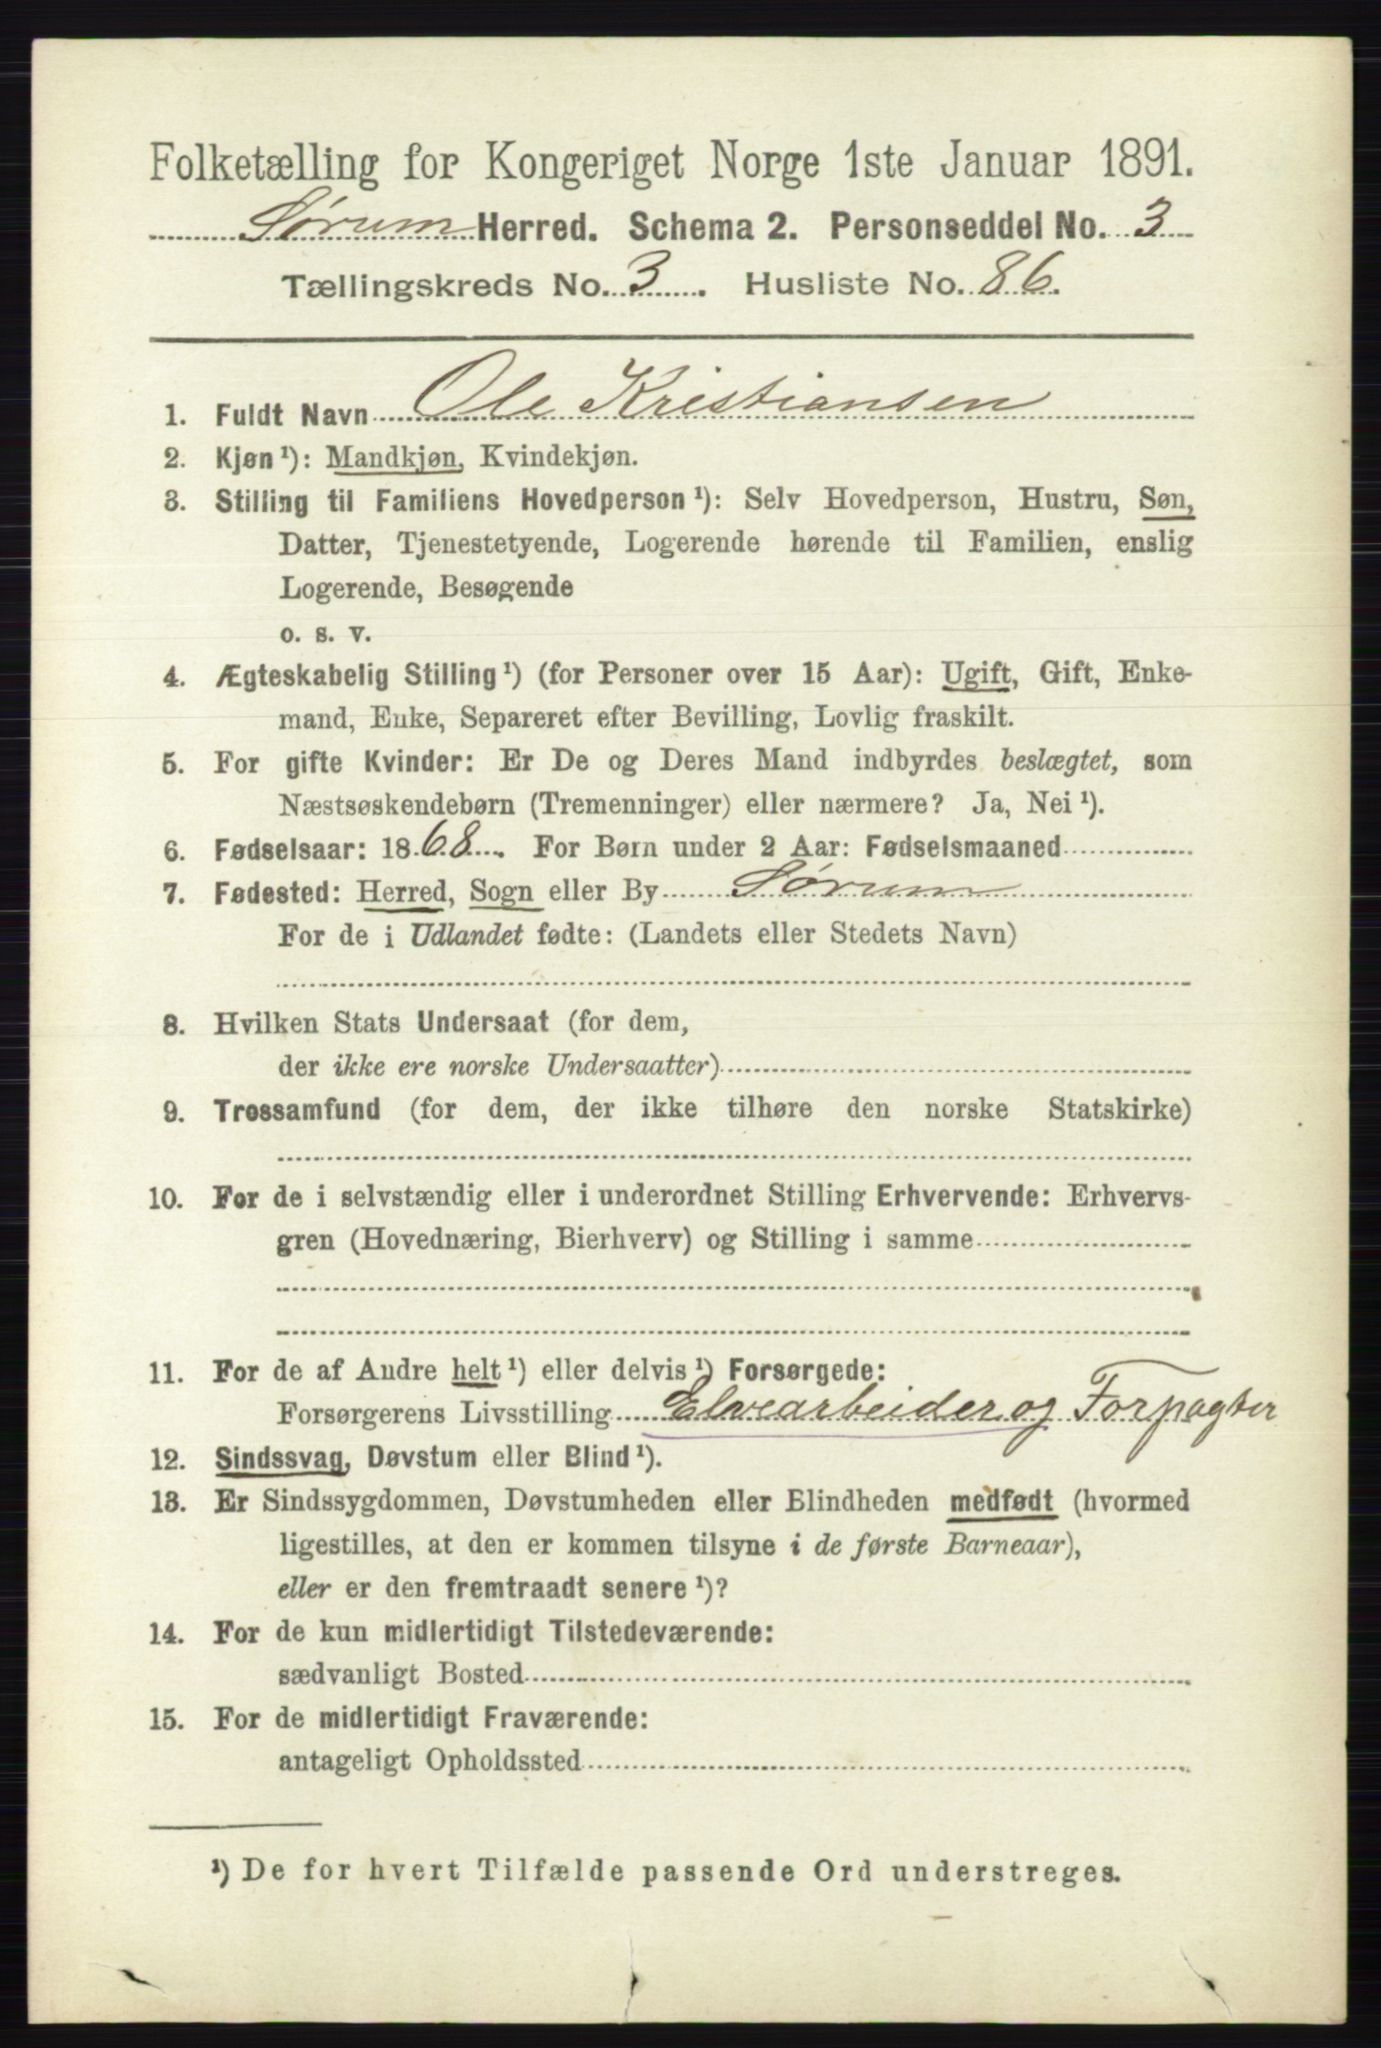 Folketælling for Kongeriget Norge 1ste Januar 1891.
Sørum Herred. Schema 2. Personseddel No. 3
Tællingskreds No. 3. Husliste No. 86.
1. Fuldt Navn Ole Kristiansen
2. Kjøn ¹): Mandkjøn, Kvindekjøn.
3. Stilling til Familiens Hovedperson ¹): Selv Hovedperson, Hustru, Søn,
Datter, Tjenestetyende, Logerende hørende til Familien, enslig
Logerende, Besøgende
o. s. v.
4. Ægteskabelig Stilling ¹) (for Personer over 15 Aar): Ugift, Gift, Enke-
mand, Enke, Separeret efter Bevilling, Lovlig fraskilt.
5. For gifte Kvinder: Er De og Deres Mand indbyrdes beslægtet, som
Næstsøskendebørn (Tremenninger) eller nærmere? Ja, Nei ¹).
6. Fødselsaar: 1868. For Børn under 2 Aar: Fødselsmaaned
7. Fødested: Herred, Sogn eller By Sørum
For de i Udlandet fødte: (Landets eller Stedets Navn)
8. Hvilken Stats Undersaat (for dem,
der ikke ere norske Undersaatter)
9. Trossamfund (for dem, der ikke tilhøre den norske Statskirke)
10. For de i selvstændig eller i underordnet Stilling Erhvervende: Erhvervs-
gren (Hovednæring, Bierhverv) og Stilling i samme
11. For de af Andre helt ¹) eller delvis ¹) Forsørgede:
Forsørgerens Livsstilling Elvearbeider og Forpagter
12. Sindssvag, Døvstum eller Blind ¹).
13. Er Sindssygdommen, Døvstumheden eller Blindheden medfødt (hvormed
ligestilles, at den er kommen tilsyne i de første Barneaar),
eller er den fremtraadt senere ¹)?
14. For de kun midlertidigt Tilstedeværende:
sædvanligt Bosted
15. For de midlertidigt Fraværende:
antageligt Opholdssted
¹) De for hvert Tilfælde passende Ord understreges.